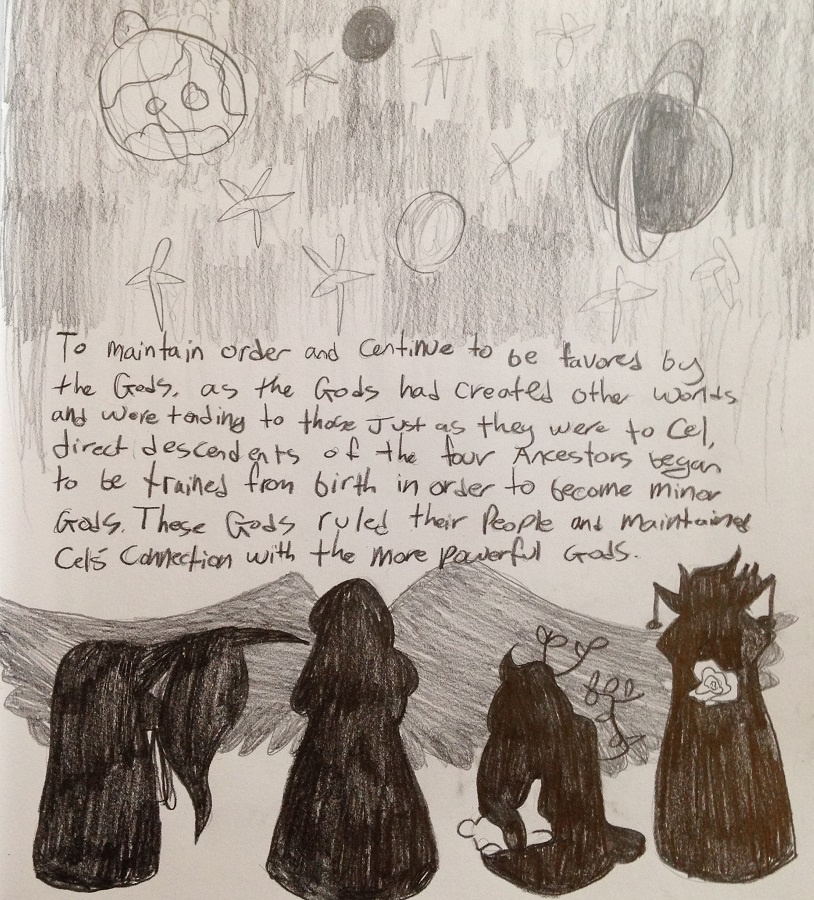 To maintain order and continue to be favored by
the Gods, as the Gods had created other worlds
and were tending to those Just as they were to Cel,
direct descendents of the four Ancestors began
to be trained from birth in order to become minor
Gods. These Gods ruled their People and maintained
Cel's Connection with the more powerful Gods.